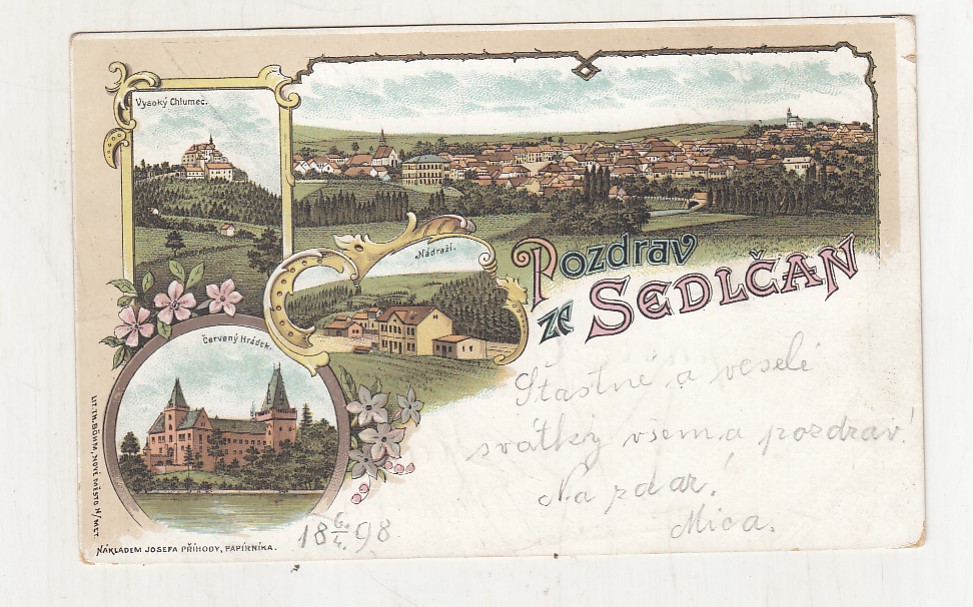 Vysoký Chlumec.
Nádraží.
Pozdrav
ze SEDLČAN
Červený Hrádek.
Šťastné a veselé
svátky všem a pozdrav!
Na zdar!
18 6./4. 98
LIT. TH. BÖHM, NOVÉ MĚSTO N/MET.
NÁKLADEM JOSEFA PŘÍHODY, PAPÍRNÍKA.